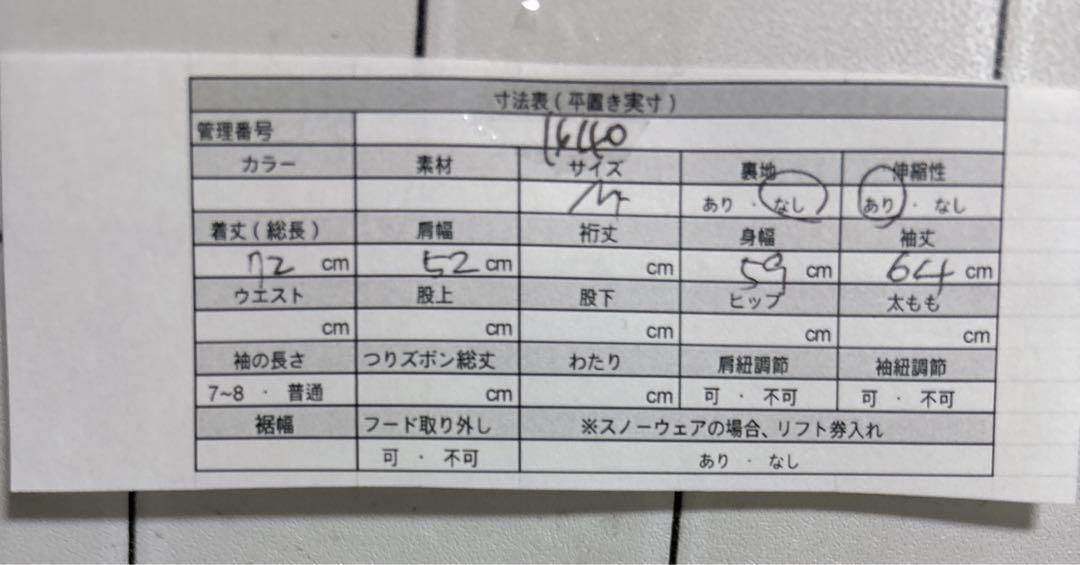 寸法表(平置き実寸)
管理番号 16140
カラー 素材 サイズ 裏地 伸縮性
M あり ・ なし あり ・ なし
着丈(総長) 肩幅 裄丈 身幅 袖丈
72 cm 52 cm cm 59 cm 64 cm
ウエスト 股上 股下 ヒップ 太もも
cm cm cm cm cm
袖の長さ つりズボン総丈 わたり 肩紐調節 袖紐調節
7~8 ・ 普通 cm cm 可 ・ 不可 可 ・ 不可
裾幅 フード取り外し ※スノーウェアの場合、リフト券入れ
可 ・ 不可 あり ・ なし